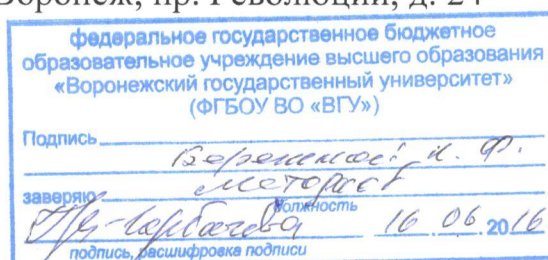 Воронеж, пр. Революции, д. 24
федеральное государственное бюджетное
образовательное учреждение высшего образования
«Воронежский государственный университет»
(ФГБОУ ВО «ВГУ»)
Подпись
заверяю
должность
16 06 2016
подпись, расшифровка подписи